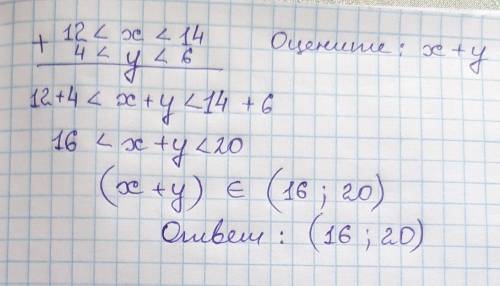 + 12 < x < 14 Оцените: x+y
4 < y < 6
12+4 < x+y < 14 + 6
16 < x+y < 20
(x+y) ∈ (16 ; 20)
Ответ : (16 ; 20)